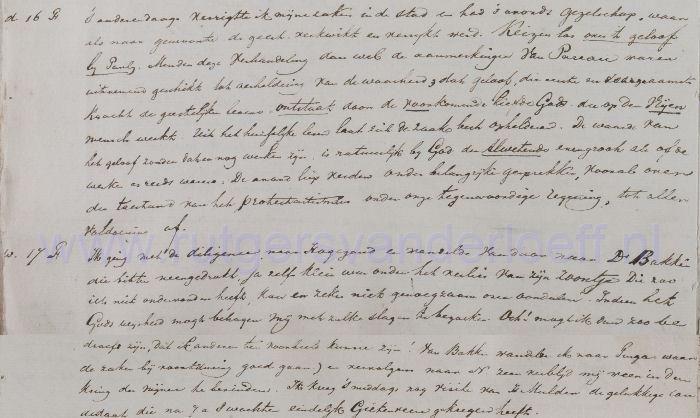 d. 16 Fr 's anderendaags verrigtte ik mijne zaken in de stad en had 's avonds gezelschap, waar
als naar gewoonte de geest verkwikt en verrijkt werd. Reizen las over 't geloof
bij Paulus. Menden deze verhandeling dan wel de aanmerkingen van Pareau waren
uitnemend geschikt tot verheldering van de waarheid, dat geloof, die eerste en voornaamste
kracht des geestelijken levens ontstaat door de voorkomende liefde Gods, die op den vrijen
mensch werkt. Uit het huisselijke leven laat zich de zaak best ophelderen. De waarde van
het geloof zonder daden nog werken zijn, is natuurlijk bij God den alwetende even groot als of de
werken er reeds waren. De avond liep verders onder belangrijke gesprekken vooral over
den toestand van het protestantismus onder onze tegenwoordige regering, tot aller
voldoening af.
w. 17 Fr Ik ging met de diligence naar Hag en wandelde van daar naar Ds Bakker
die bitter neergedrukt ja zelf klein was onder het verlies van zijn zoontje. Die zoo
iets niet ondervonden heeft, kan er zeker niet genoegzaam over oordeelen. Indien het
Gods wijsheid mogt behagen mij met zulke slagen te bezoeken. Och! mogt ik dan zoo be
droefd zijn, dat ik anderen ten voorbeeld kunne zijn! Van Bakker wandelde ik naar Ju waar
de zaken bij voortduring goed gaan, en vervolgens naar N. zeer verblijd mij weer in den
kring der mijnen te bevinden. Ik kreeg 's middags nog visite van Ds Mulder de gelukkige can
didaat die na 7 a 8 wachten eindelijk Gieterveen gekregen heeft.
www.rutgersvanderloeff.nl